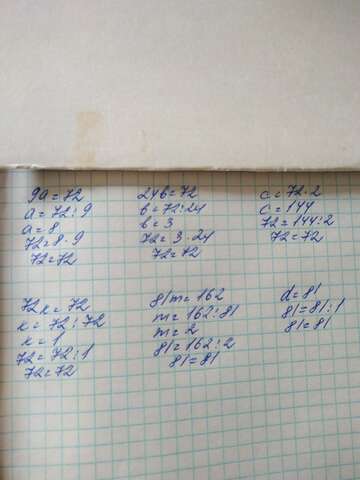 9a=72
a=72:9
a=8
72=8·9
72=72
24b=72
b=72:24
b=3
72=3·24
72=72
c=72·2
c=144
72=144:2
72=72
72k=72
k=72:72
k=1
72=72:1
72=72
81m=162
m=162:81
m=2
81=162:2
81=81
d=81
81=81:1
81=81